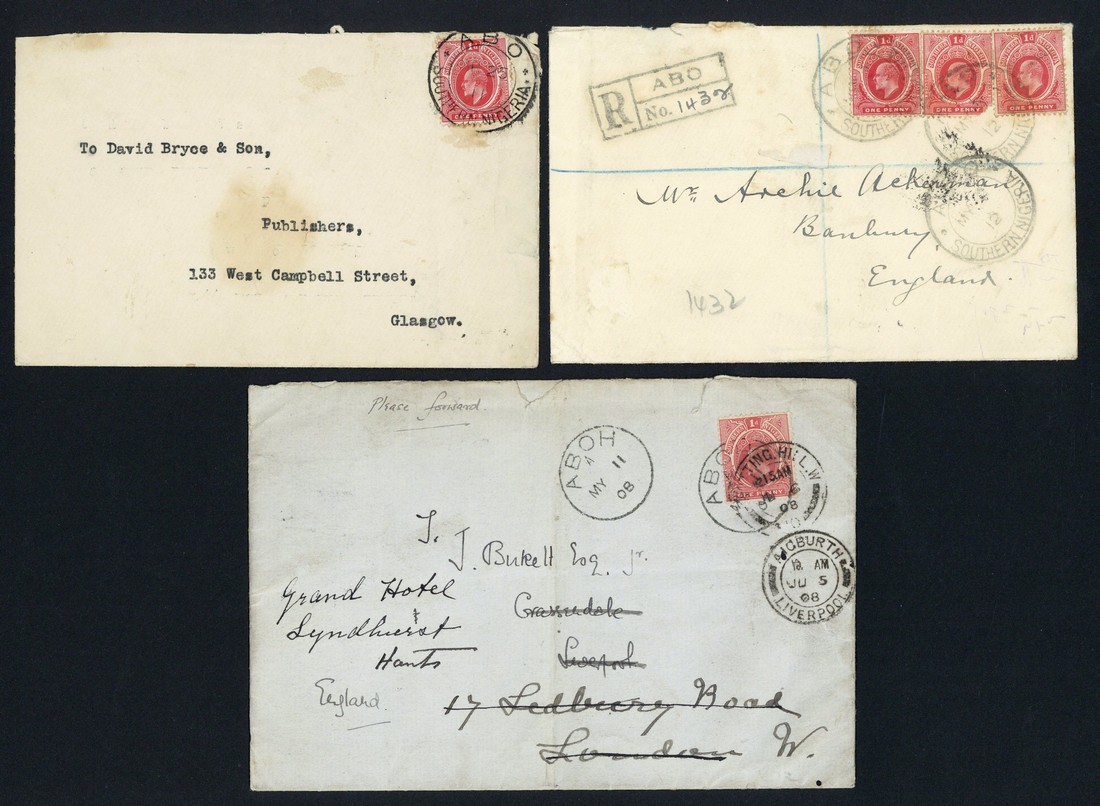 ABO
SOUTHERN NIGERIA.
To David Bryce & Son,
Publishers,
133 West Campbell Street,
Glasgow.
R
ABO
No. 1432
1d 1d 1d
ONE PENNY ONE PENNY ONE PENNY
SOUTHERN NIGERIA
12
SOUTHERN NIGERIA
12
Mr Archie Ackerman
Banbury,
England.
1432
Please forward
ABOH
MY 11
08
1d
ONE PENNY
ABO
NOTTING.HILL.W
12.15AM
08
AIGBURTH
12. AM
JU 5
08
LIVERPOOL
T. J. Birkett Esq. Jr.
Grassendale
Liverpool
Grand Hotel
Lyndhurst
Hants
England.
17 Ledbury Road
London W.